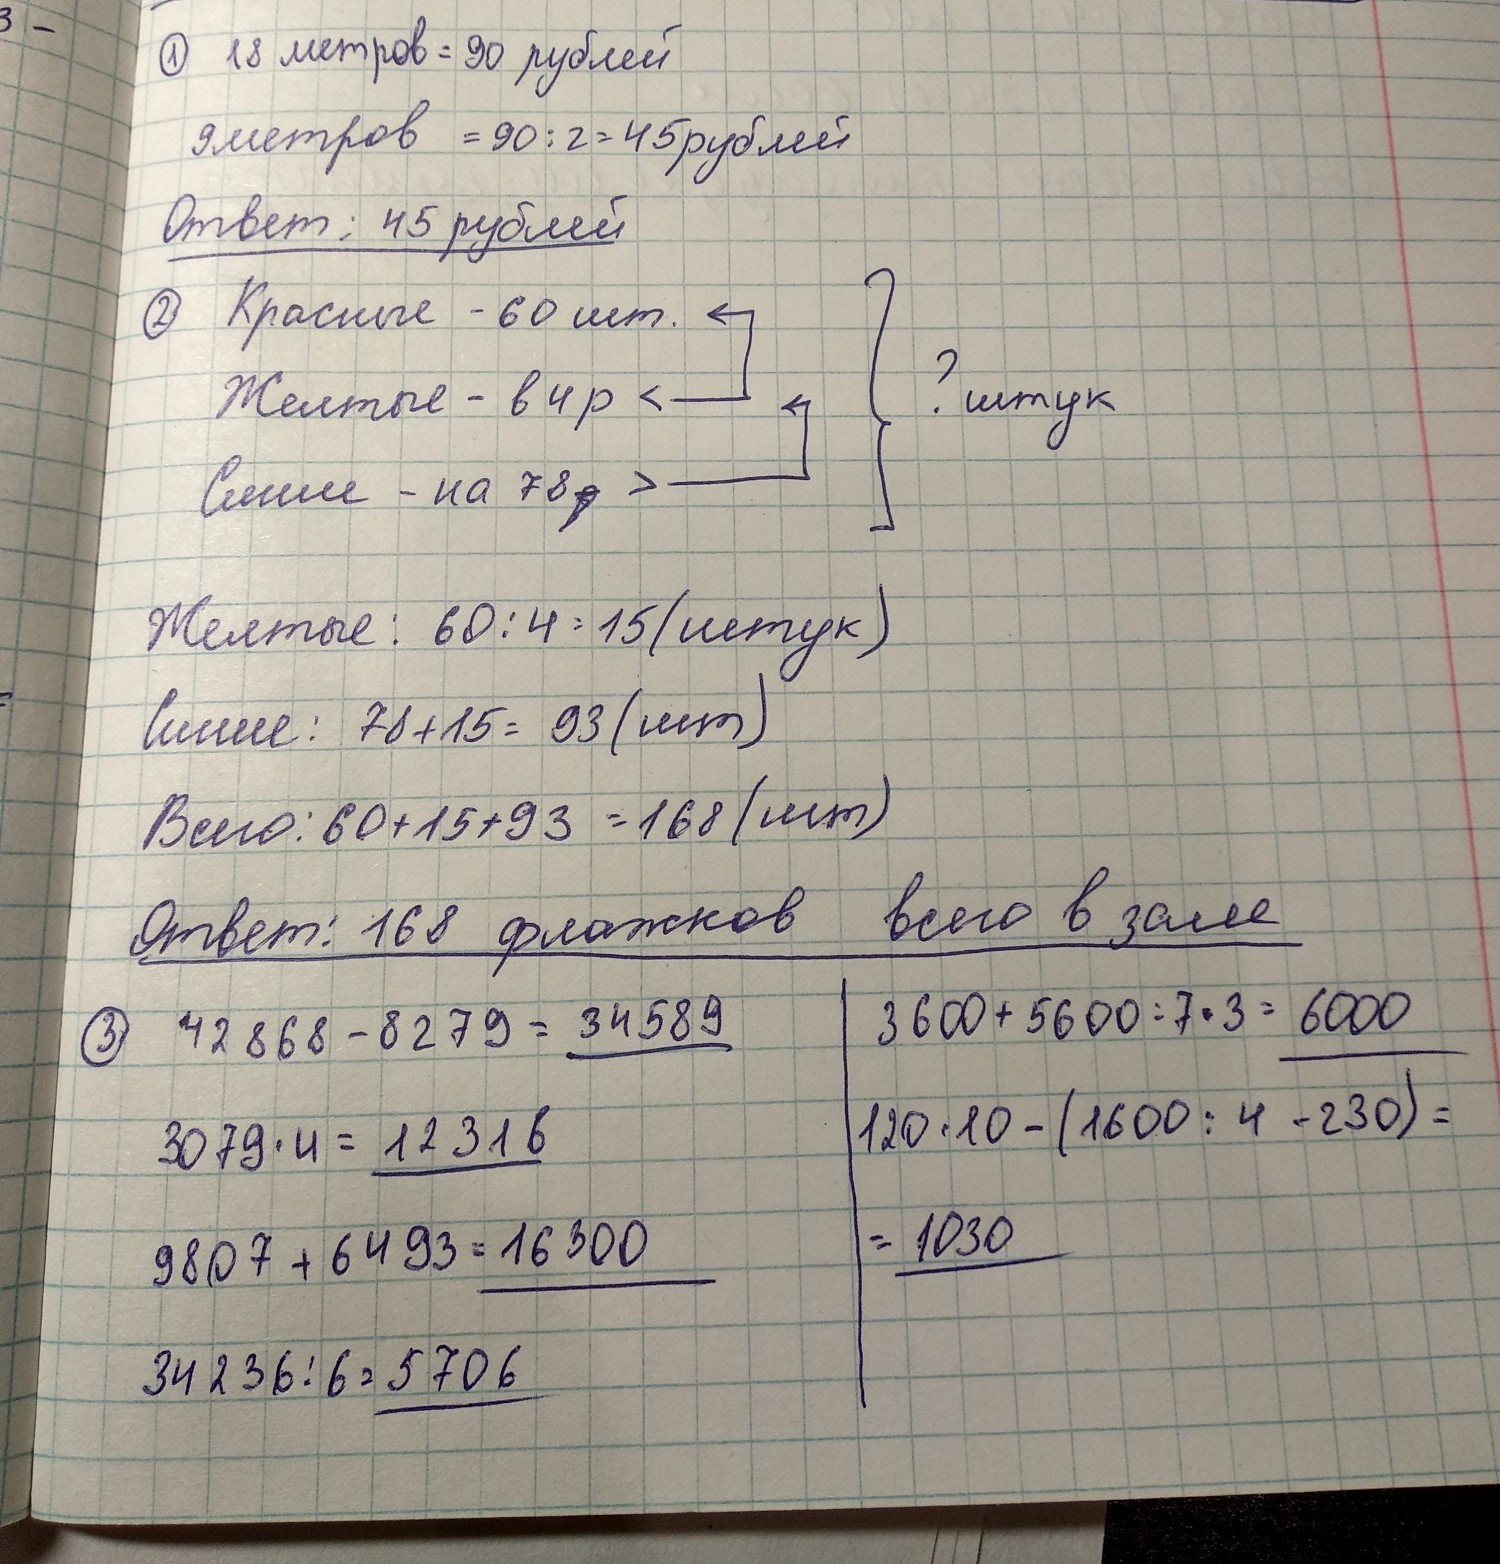 3 -
① 18 метров = 90 рублей
9 метров = 90 : 2 = 45 рублей
Ответ: 45 рублей
② Красные - 60 шт.
Желтые - в 4 р <
? штук
Синие - на 78 >
Желтые: 60 : 4 = 15 (штук)
Синие: 78 + 15 = 93 (шт)
Всего: 60 + 15 + 93 = 168 (шт)
Ответ: 168 флажков всего в зале
③ 42868 - 8279 = 34589
3079 · 4 = 12316
9807 + 6493 = 16300
34236 : 6 = 5706
3600 + 5600 : 7 · 3 = 6000
120 · 10 - (1600 : 4 - 230) =
= 1030